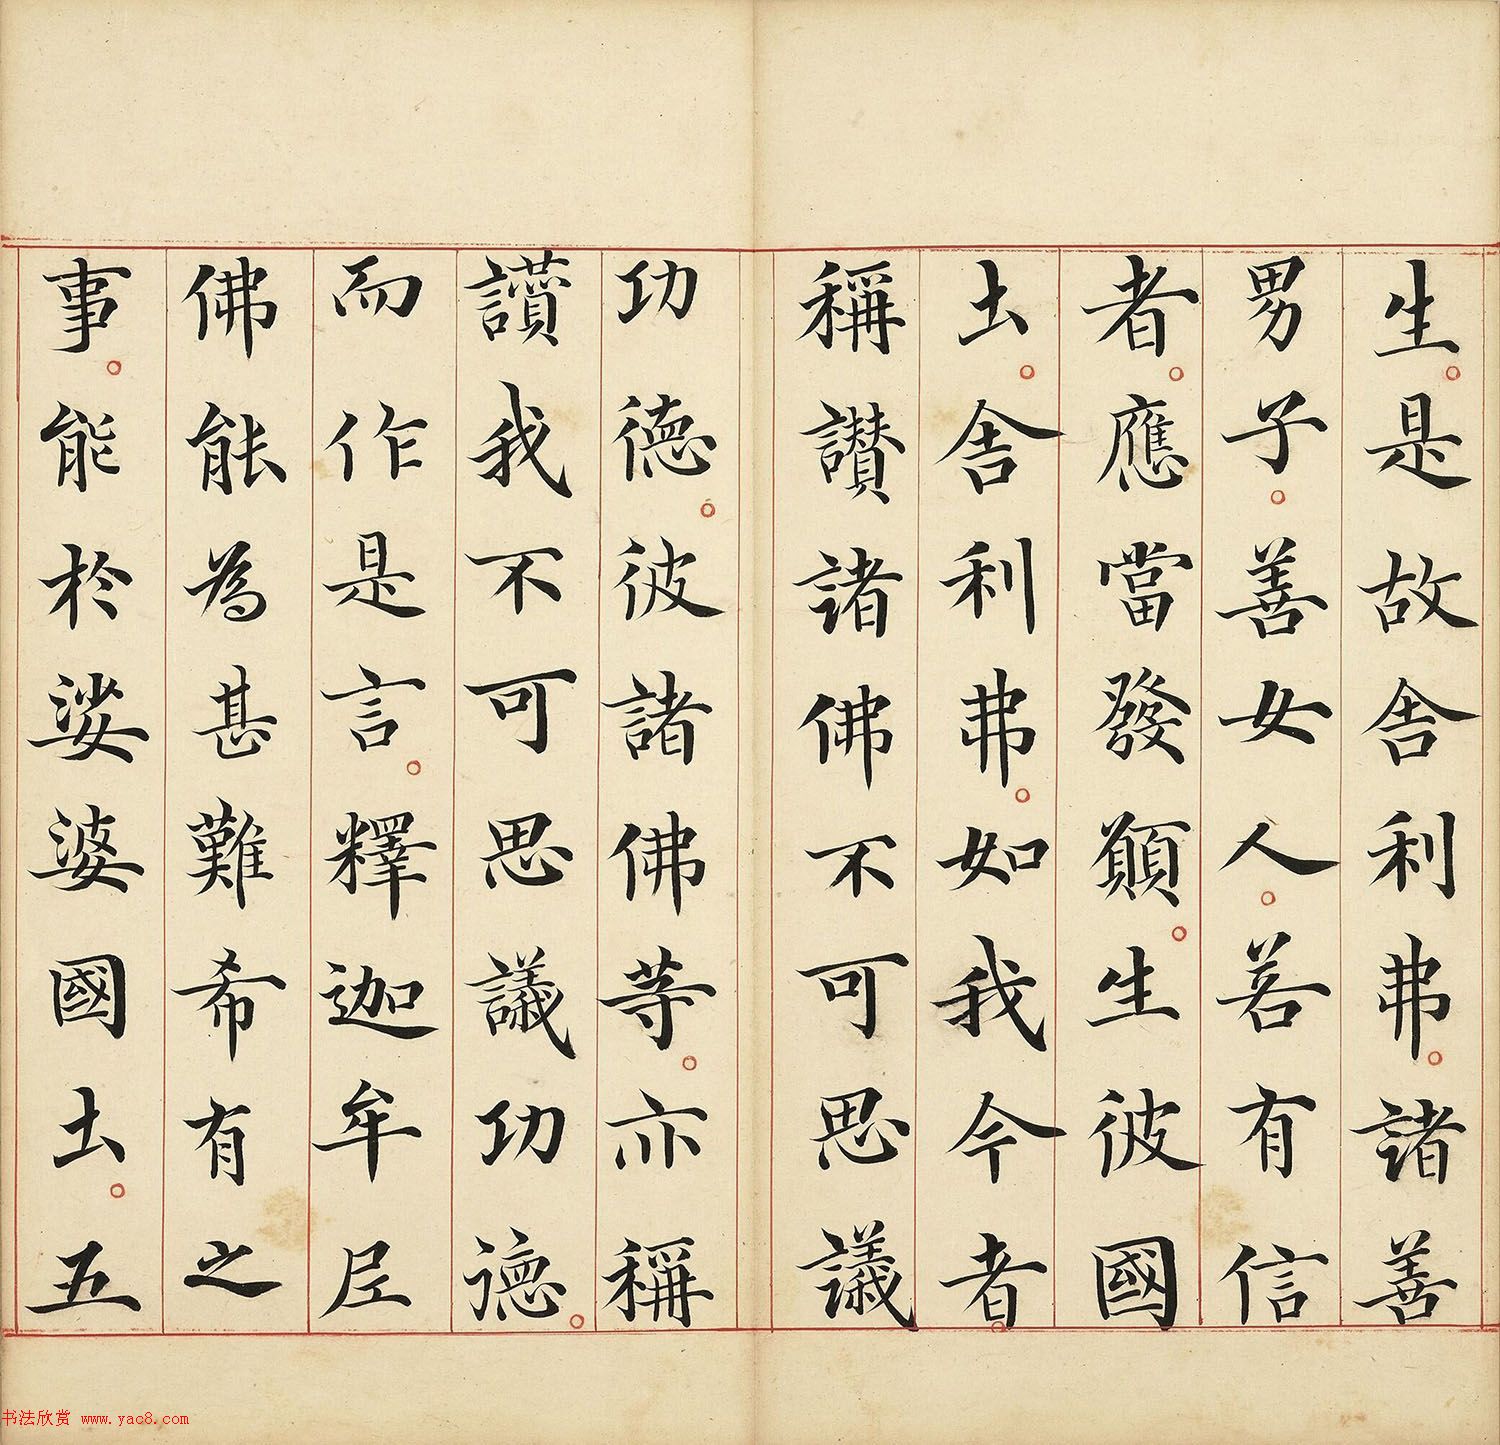 生。是故舎利弗。諸善
男子。善女人。若有信
者。應當發願。生彼國
土。舎利弗。如我今者。
稱讃諸佛不可思議
功德。彼諸佛等。亦稱
讃我不可思議功德。
而作是言。釋迦牟尼
佛能為甚難希有之
事。能於娑婆國土。五
书法欣赏 www.yac8.com